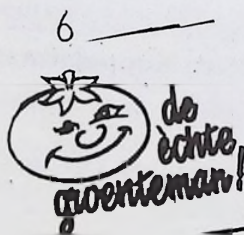 6
de
èchte
groenteman!